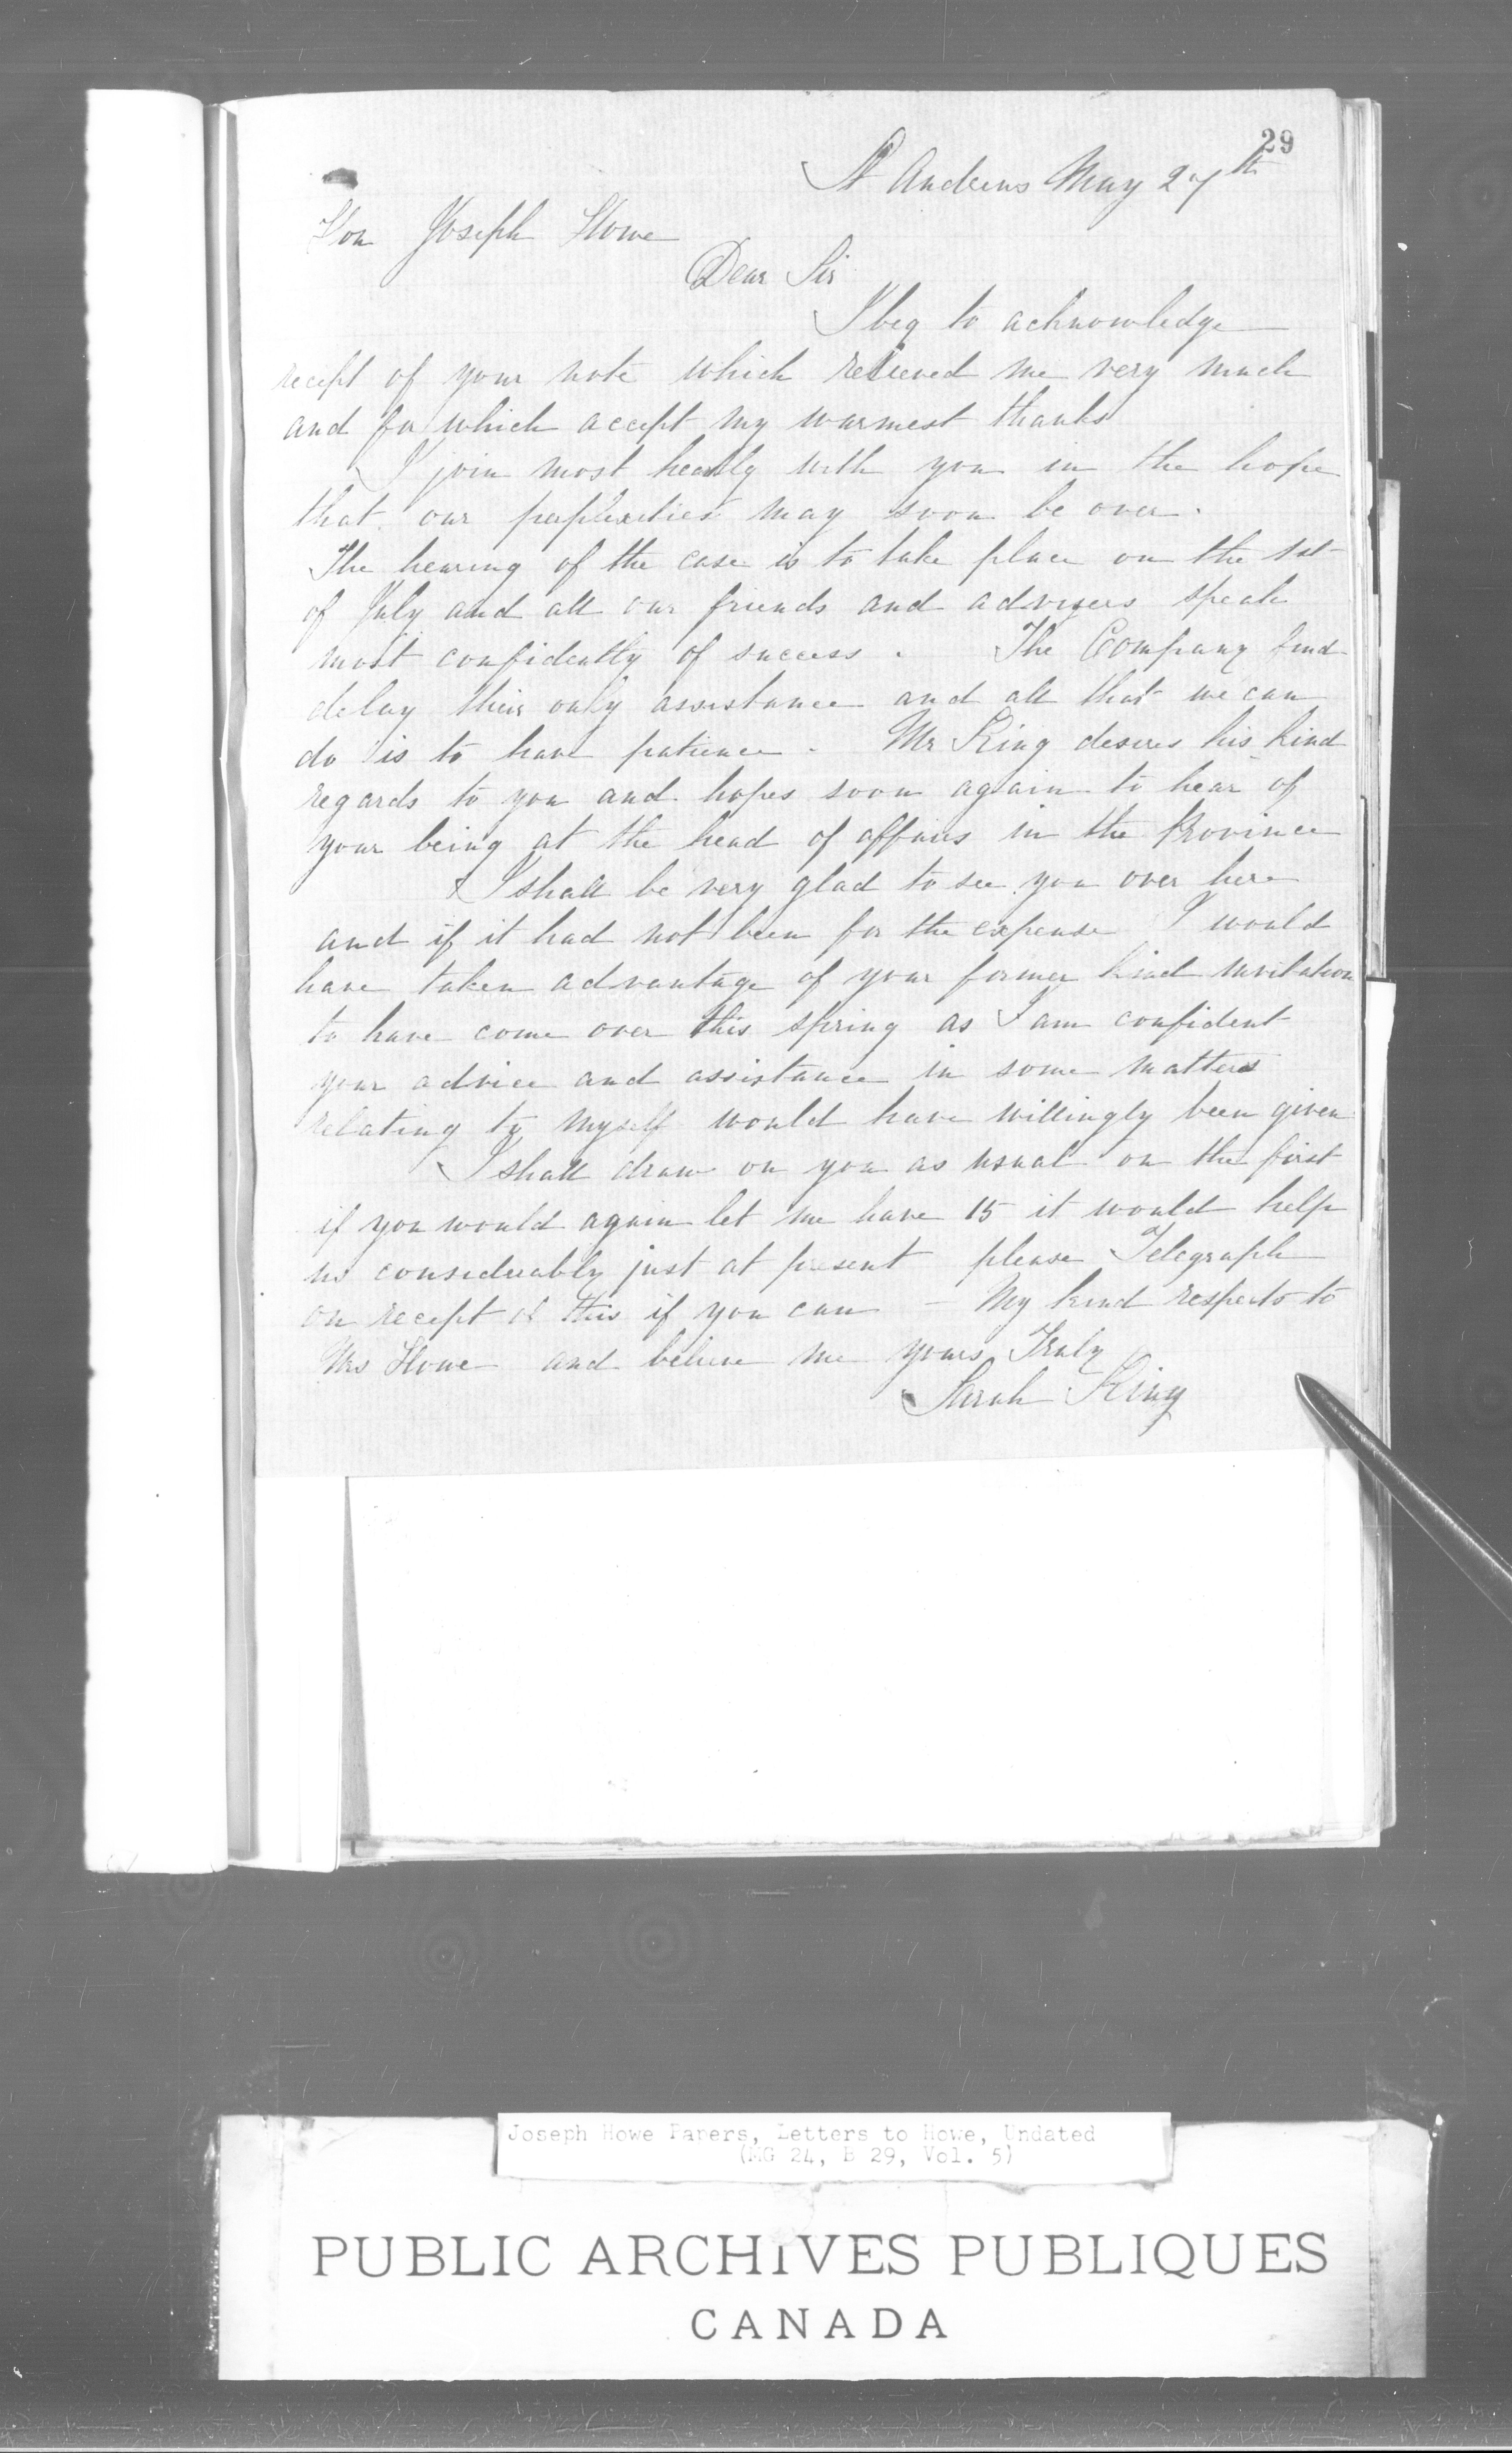 29
St Andrews May 27th
Hon Joseph Howe
Dear Sir
I beg to acknowledge
recept of your note which relieved me very much
and for which accept my warmest thanks
I join most heartly with you in the hope
that our perplexities may soon be over.
The hearing of the case is to take place on the 1st
of July and all our friends and advisers speak
most confidently of success. The Company find
delay their only assistance and all that we can
do is to have patience. Mr King desires his kind
regards to you and hopes soon again to hear of
your being at the head of affairs in the Province
I shall be very glad to see you over here
and if it had not been for the expense I would
have taken advantage of your former kind invitation
to have come over this spring as I am confident
your advice and assistance in some matters
relating to myself would have willingly been given
I shall draw on you as usual on the first
if you would again let me have 15 it would help
us considerably just at present please Telegraph
on recept of this if you can - My kind respects to
Mrs Howe and believe me yours Truly
Sarah King
Joseph Howe Papers, Letters to Howe, Undated
(MG 24, B 29, Vol. 5)
PUBLIC ARCHIVES PUBLIQUES
CANADA